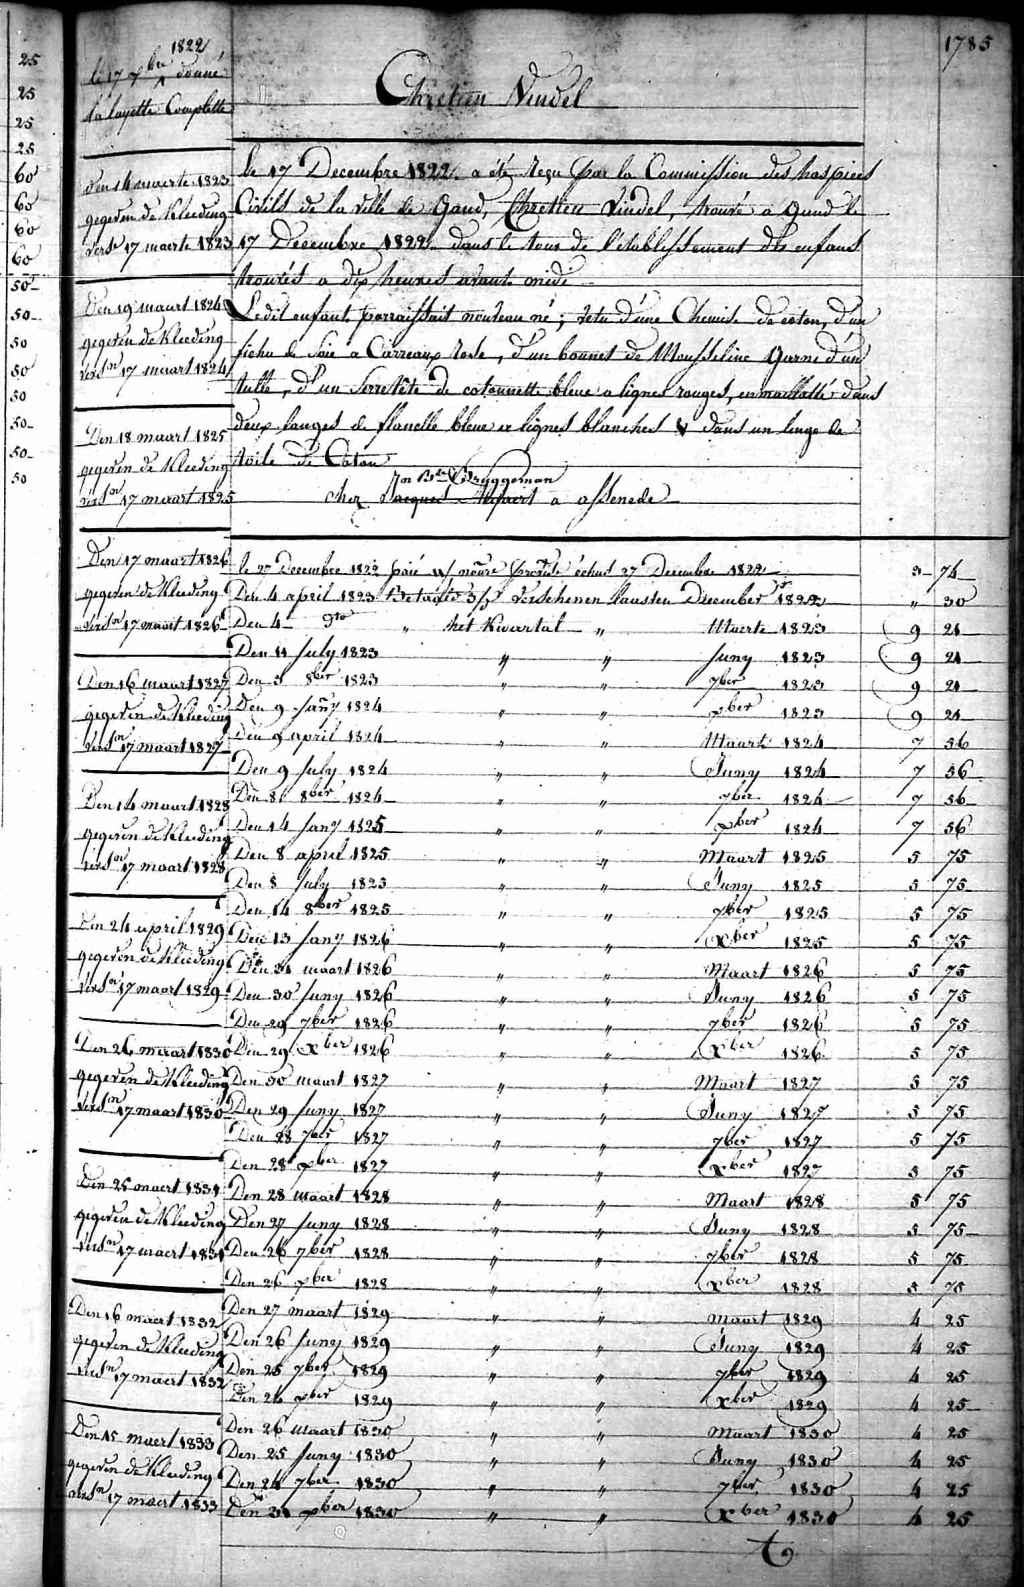 1785
25
25
25
25
60
60
60
60
50
50
50
50
50
50
50
50
1822
le 17 xbre donné
la layette Complette
Chretien Vindel
Le 17 Decembre 1822 a été reçu par la Commission des hospices
Civils de la ville de Gand, Chretien Vindel, trouvé a Gand le
17 Decembre 1822 dans le tour de l'etablissement des enfans
trouvés a dix heures avant midi
Ledit enfant parraissait nouveau né; vetu d'une Chemise de coton, d'un
fichu de soie a Carreaux Rose, d'un bonnet de Mousseline Garni d'un
tulle, d'un Serretête de cotonnette bleue a lignes rouges, enmaillotté dans
deux langes de flanelle bleue a lignes blanches & dans un linge de
toile de Coton
Jn Bte Bruggeman
chez Jacques a assenede
den 14 maerte 1823
gegeven de Kleeding
verse 17 maerte 1823
Den 19 maart 1824
gegeven de Kleeding
versn 17 maart 1824
Den 18 maart 1825
gegeven de Kleeding
versn 17 maart 1825
Den 17 maart 1826
gegeven de Kleeding
versn 17 maart 1826
Den 16 maart 1827
gegeven de Kleeding
versn 17 maart 1827
Den 14 maart 1828
gegeven de Kleeding
versn 17 maart 1828
Den 24 april 1829
gegeven de Kleeding
versn 17 maart 1829
Den 26 maart 1830
gegeven de Kleeding
versn 17 maart 1830
Den 25 maert 1831
gegeven de Kleeding
versn 17 maert 1831
Den 16 maert 1832
gegeven de Kleeding
versn 17 maert 1832
Den 15 maert 1833
gegeven de Kleeding
versn 17 maert 1833
le 27 Decembre 1822 paié a/ échut 27 Decembre 1822 3 74
Den 4 april 1823 Betaald 3/j verschenen lausten December 1822 " 30
Den 4 dto " het Kwartal " Maerte 1823 9 21
Den 11 July 1823 " " Juny 1823 9 21
Den 3 8ber 1823 " " 7ber 1823 9 21
Den 9 Jany 1824 " " xber 1823 9 21
Den 9 april 1824 " " Maart 1824 7 56
Den 9 July 1824 " " Juny 1824 7 56
Den 8 8ber 1824 " " 7ber 1824 7 56
Den 14 Jany 1825 " " xber 1824 7 56
Den 8 april 1825 " " Maart 1825 5 75
Den 8 July 1825 " " Juny 1825 5 75
Den 14 8ber 1825 " " 7ber 1825 5 75
Den 13 Jany 1826 " " xber 1825 5 75
Den 31 maart 1826 " " Maart 1826 5 75
Den 30 Juny 1826 " " Juny 1826 5 75
Den 29 7ber 1826 " " 7ber 1826 5 75
Den 29 xber 1826 " " xber 1826 5 75
Den 30 maart 1827 " " Maart 1827 5 75
Den 29 Juny 1827 " " Juny 1827 5 75
Den 28 7ber 1827 " " 7ber 1827 5 75
Den 28 xber 1827 " " xber 1827 5 75
Den 28 maart 1828 " " Maart 1828 5 75
Den 27 Juny 1828 " " Juny 1828 5 75
Den 26 7ber 1828 " " 7ber 1828 5 75
Den 26 xber 1828 " " xber 1828 5 75
Den 27 maart 1829 " " Maart 1829 4 25
Den 26 Juny 1829 " " Juny 1829 4 25
Den 25 7ber 1829 " " 7ber 1829 4 25
Den 24 xber 1829 " " xber 1829 4 25
Den 26 maart 1830 " " Maart 1830 4 25
Den 25 Juny 1830 " " Juny 1830 4 25
Den 24 7ber 1830 " " 7ber 1830 4 25
Den 31 xber 1830 " " xber 1830 4 25